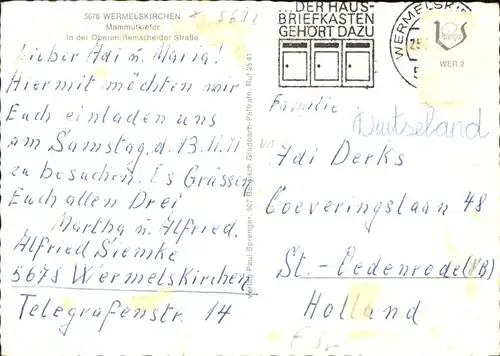 5678 WERMELSKIRCHEN
Mammutkiefer
In der Oberen Remscheider Straße
Lieber Adi u. Maria!
Hiermit möchten wir
Euch einladen uns
am Samstag, d. 13.11.71
zu besuchen. Es Grüssen
Euch allen Drei
Martha u. Alfred.
Alfried Siemke
5678 Wermelskirchen
Telegrafenstr. 14
Verlag Paul Sprenger, 507 Bergisch Gladbach-Paffrath, Ruf 25 41
...DER HAUS-
BRIEFKASTEN
GEHÖRT DAZU
WERMELSKIR
WER 2
Familie
Duitseland
Adi Derks
Coeveringslaan 48
St.-Oedenrode (NB)
Holland